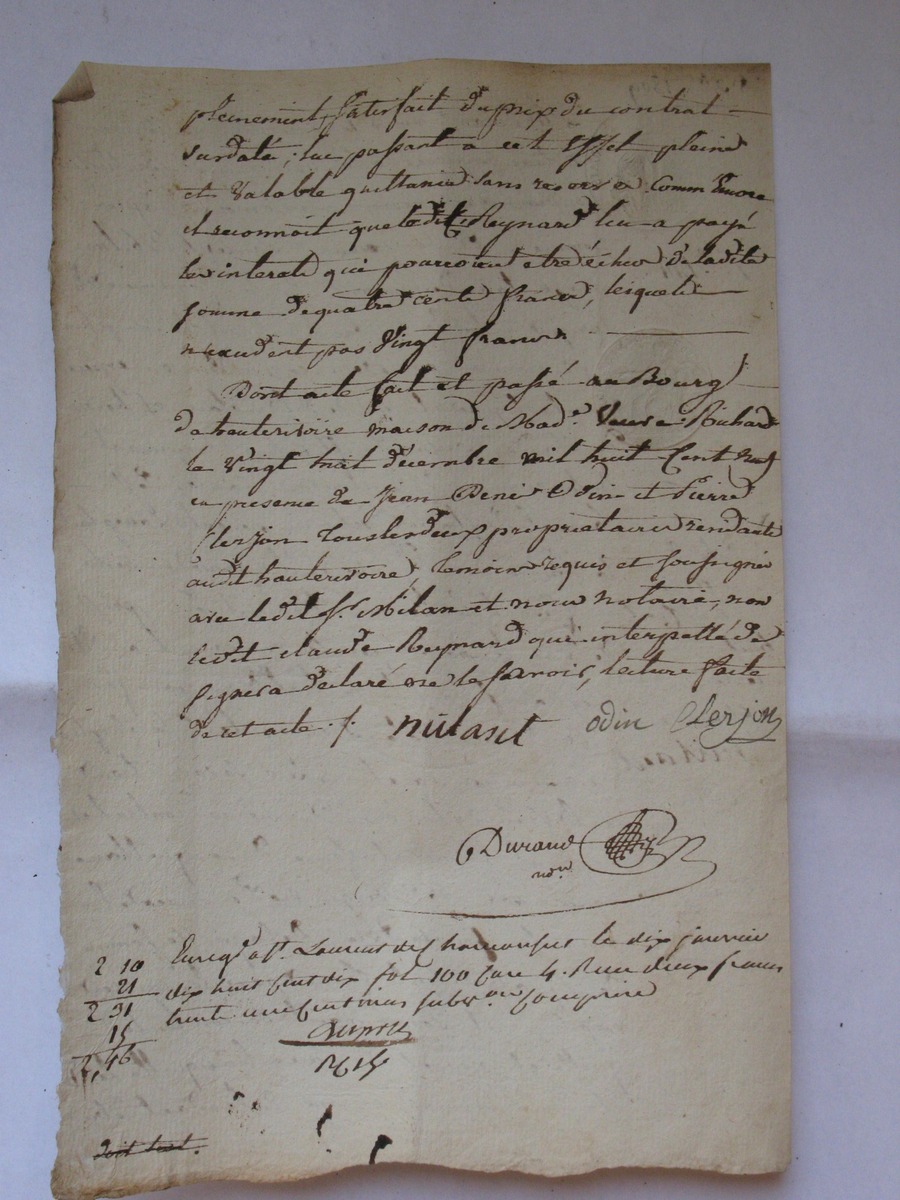 pleinement satisfait du prix du contrat
surdaté, luy passant a cet effet pleine
et valable quittance sans reserve. Comm Encore
il reconnoit que ledit Reynard lui a payé
les interets qui pourroient etre échus de ladite
somme de quatre cents francs, lesquels
n'excedent pas vingt francs
Dont acte fait et passé au Bourg
de hauterivoire maison de Made. veuve Richard
le vingt huit décembre mil huit cent neuf
en presence de Jean Denis Odin et Pierre
Clerjon tous les deux proprietaires rendants
audit hauterivoire, temoins requis et soussignés
avec ledit Sr. Milan et nous notaire, non
ledit claude Reynard qui interpellé de
signer a declaré ne le savoir, lecture faite
de cet acte ./.
milant odin Clerjon
Durand
nore
Enregé a St. Laurent de chamousset le dix janvier
dix huit cent dix fol 100 case 4. Reçu deux francs
trente un centimes subvon comprise
2 10
21
2 31
15
2,46